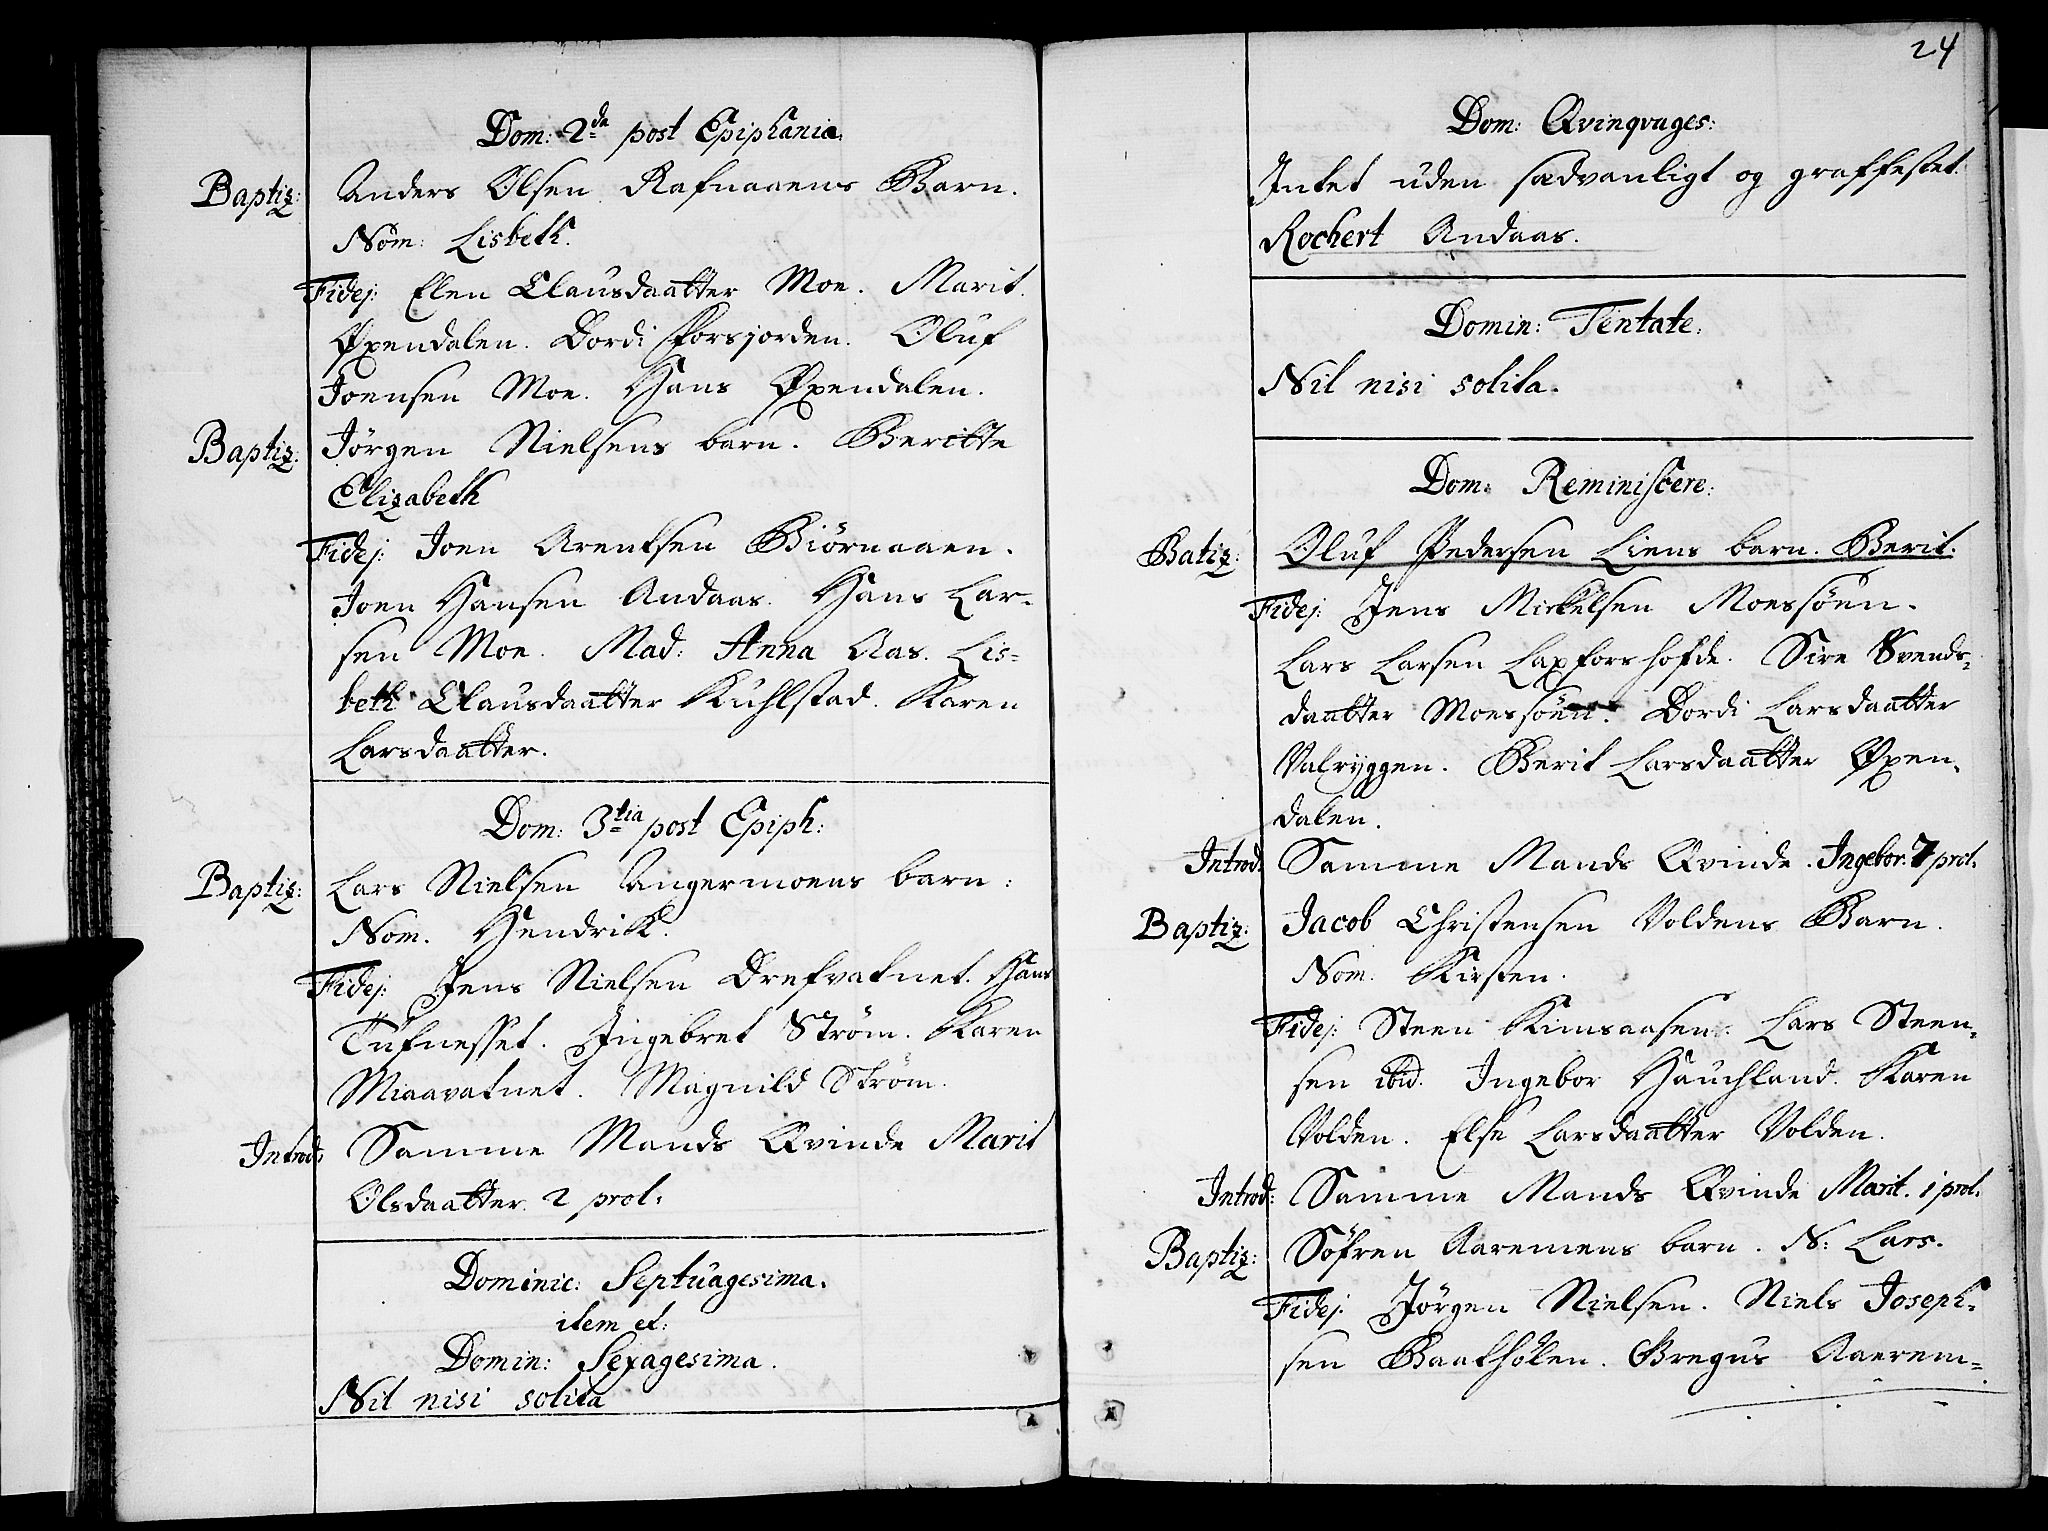 Dom: 2da post Epiphania.
Baptiz: Anders Olsen Rafnaaens Barn.
Nom: Lisbeth.
Fidej: Elen Clausdaatter Moe. Marit
Øxendalen. Dordi Forsjorden. Oluf
Joensen Moe. Hans Øxendalen.
Baptiz: Jörgen Nielsens barn. Beritte
Elizabeth
Fidej: Joen Arentsen Biörnaaen.
Joen Hansen Andaas. Hans Lar-
sen Moe. Mad: Anna Aas. Lis-
beth Clausdaatter Kuhlstad. Karen
Larsdaatter.
Dom: 3tia post Epiph:
Baptiz: Lars Nielsen Angermoens barn:
Nom. Hendrik.
Fidej: Jens Nielsen Drefvatnet. Hans
Tüfnesset. Jngebret Ström. Karen
Miaavatnet. Magnild Ström.
Introd: Samme Mands Qvinde Marit
Olsdaatter. 2 prol.
Dominic: Septuagesima.
item et.
Domin: Sexagesima.
Nil nisi solita
24
Dom: Qvinqvages:
Intet uden sædvanligt og graffestet.
Rochert Andaas.
Domin: Tentate.
Nil nisi solita.
Dom: Reminiscere:
Batiz: Oluf Pedersen Liens barn. Berit.
Fidej: Jens Mickelsen Moessöen.
Lars Larsen Laxforshofde. Sire Svends-
daatter Moessöen. Dordi Larsdaatter
Valryggen. Berit Larsdaatter Øxen-
dalen.
Introd: Samme Mands Qvinde. Ingebor. 7 prol.
Baptiz: Jacob Christensen Voldens Barn.
Nom: Kirsten.
Fidej: Steen Kimsaasen. Lars Steen-
sen ibid. Ingebor Hauchland. Karen
Volden. Else Larsdaatter Volden.
Introd: Samme Mands Qvinde Marit. 1 prol.
Baptiz: Söfren Aaremens barn. N: Lars.
Fidej: Jörgen Nielsen. Niels Joseph-
sen Baathölen. Gregus Aaerem-